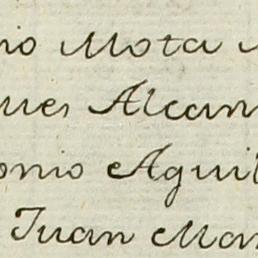 nio Mota
ues Alcan
onio Aguil
Juan Man